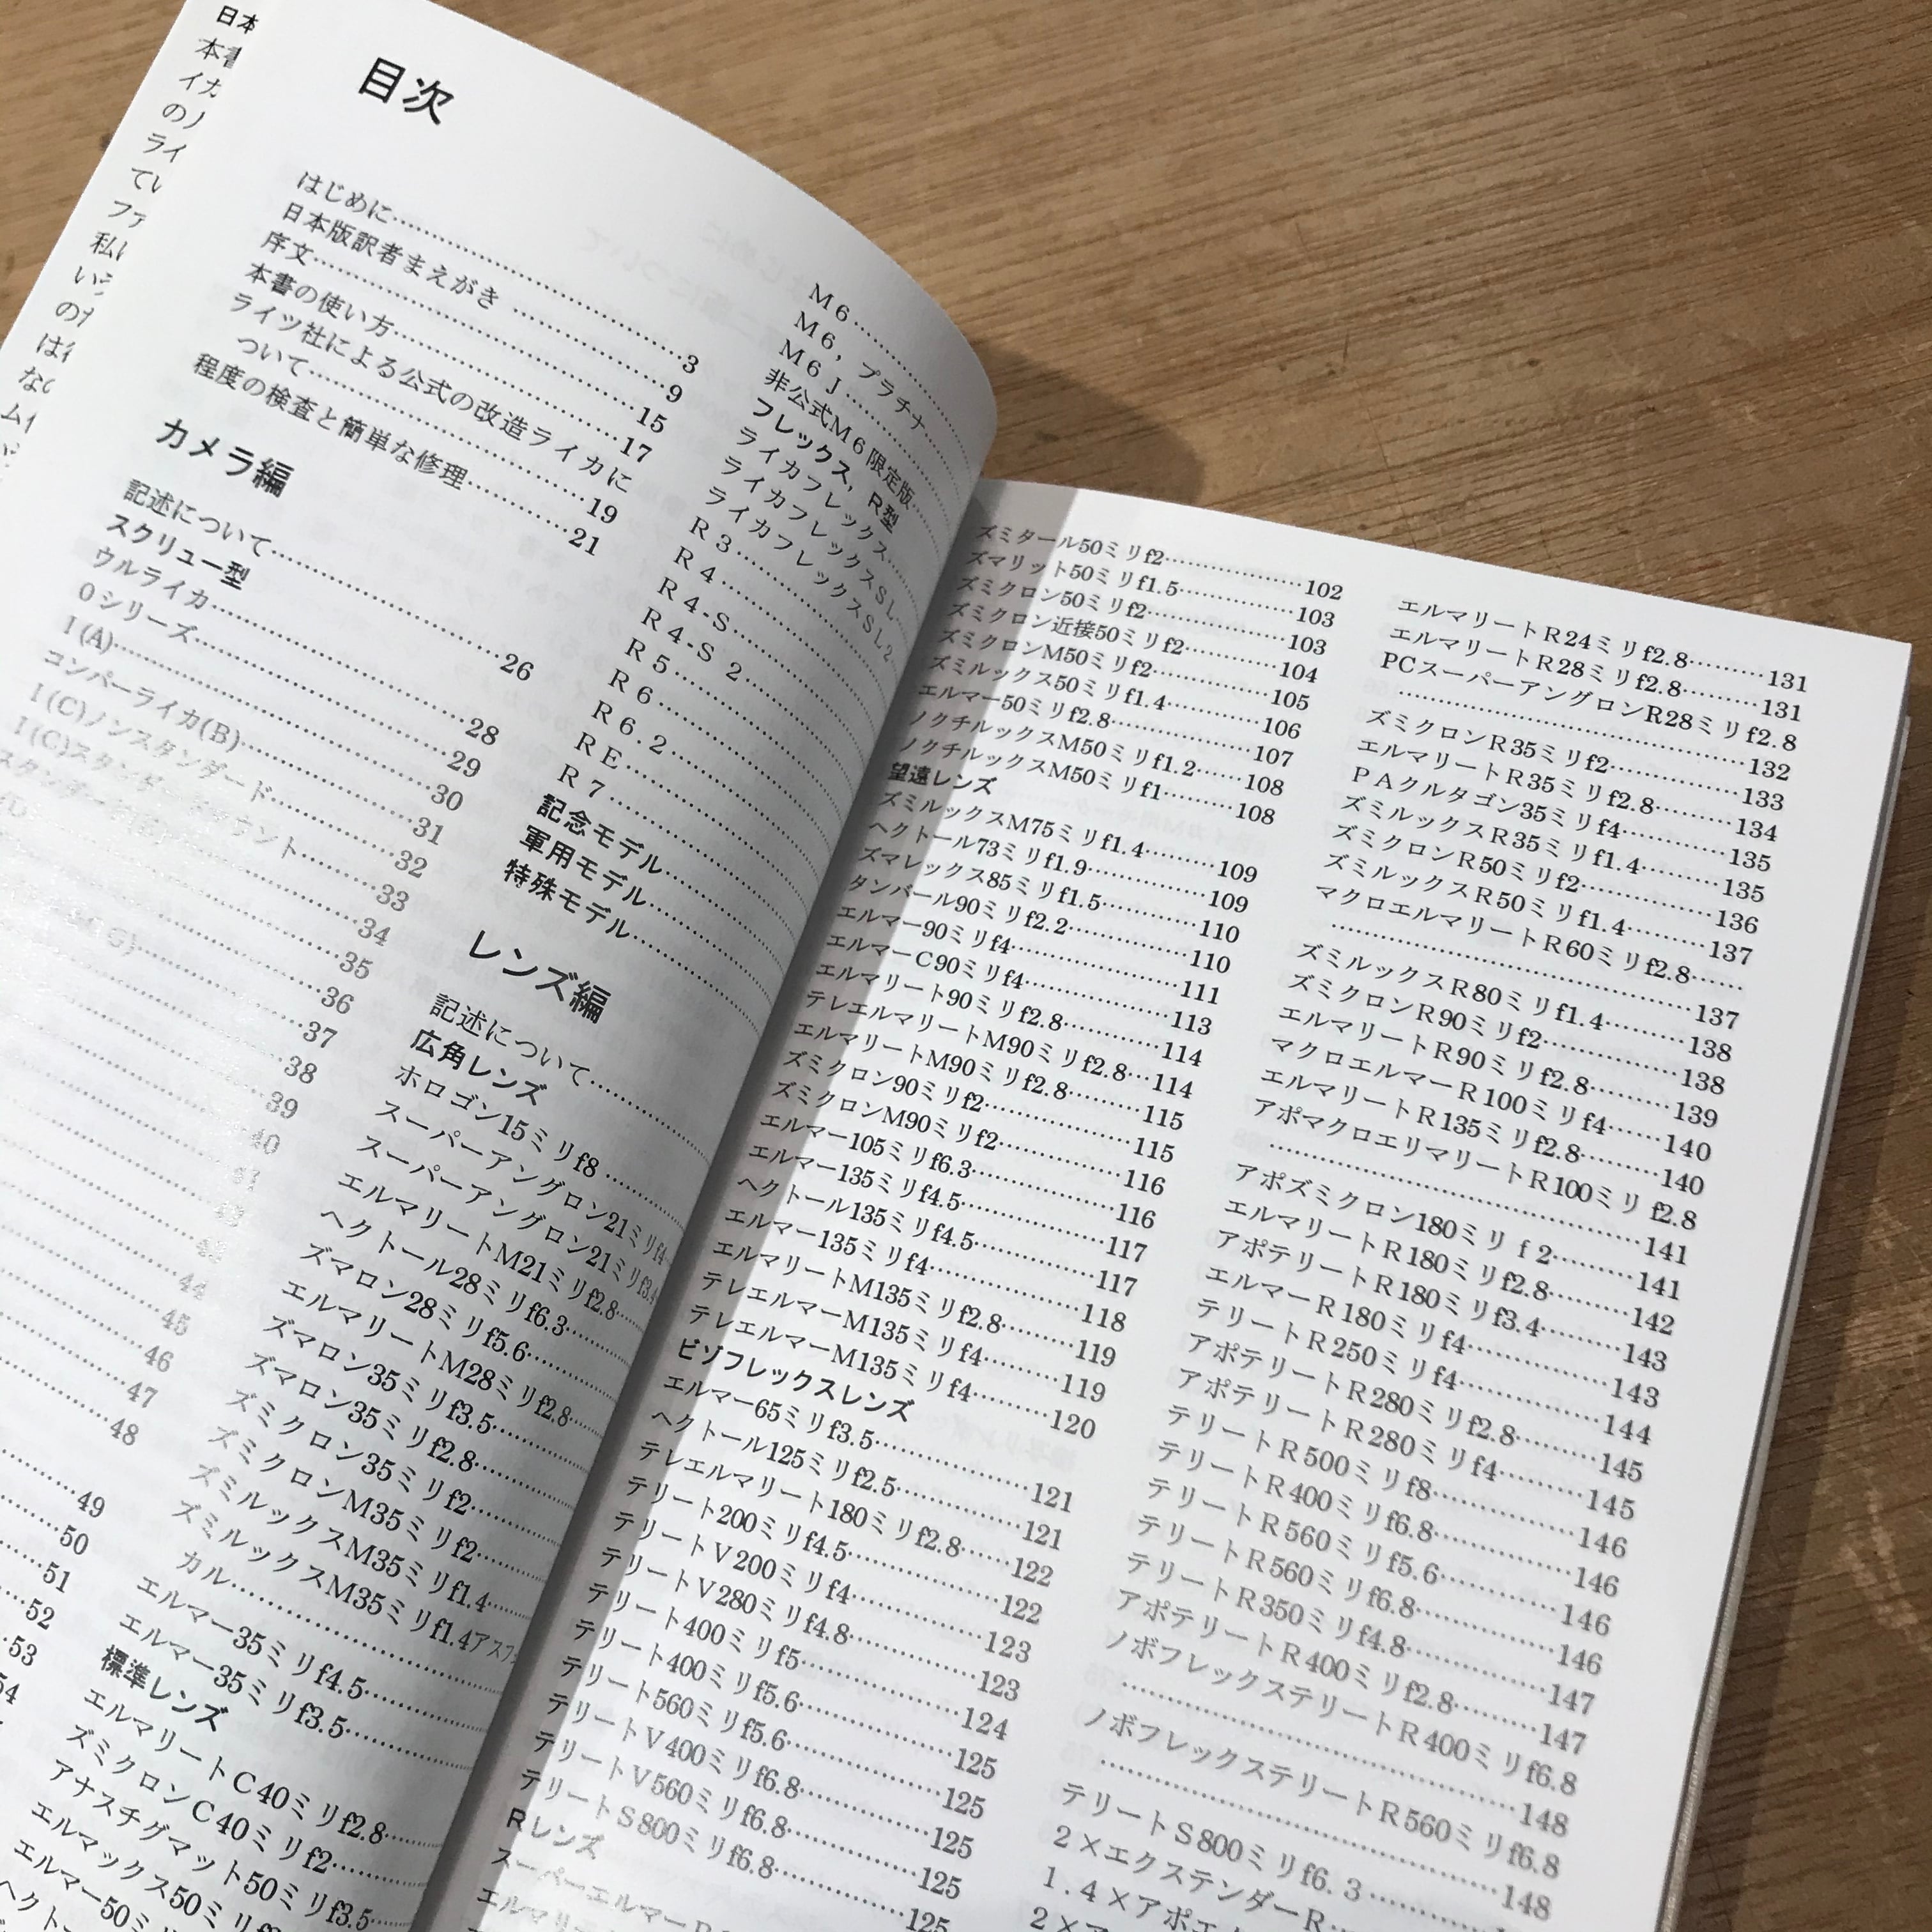 目次
はじめに……3
日本版訳者まえがき……9
序文……15
本書の使い方……17
ライツ社による公式の改造ライカに
ついて……19
程度の検査と簡単な修理……21
カメラ編
記述について……26
スクリュー型
ウルライカ……28
0シリーズ……29
I(A)……30
コンパーライカ(B)……31
I(C)ノンスタンダード……32
33
34
35
36
37
38
39
40
44
45
46
47
48
49
50
51
52
53
54
M6……
M6，プラチナ……
M6J……
非公式M6限定版……
フレックス，R型
ライカフレックス……
ライカフレックスSL……
ライカフレックスSL2
R3……
R4……
R4-S……
R4-S 2……
R5……
R6……
R6.2……
RE……
R7……
記念モデル……
軍用モデル……
特殊モデル……
レンズ編
記述について……
広角レンズ
ホロゴン15ミリf8……
スーパーアングロン21ミリf4
スーパーアングロン21ミリf3.4
エルマリートM21ミリf2.8……
ヘクトール28ミリf6.3……
ズマロン28ミリf5.6……
エルマリートM28ミリf2.8……
ズマロン35ミリf3.5……
ズマロン35ミリf2.8……
ズミクロン35ミリf2……
ズミクロンM35ミリf2……
ズミルックスM35ミリf1.4……
ズミルックスM35ミリf1.4アスフェ
カル……
エルマー35ミリf4.5……
エルマー35ミリf3.5……
標準レンズ
エルマリートC40ミリf2.8……
ズミクロンC40ミリf2……
アナスチグマット50ミリf3.5……
エルマックス50ミリ
エルマー50ミリ
ズミタール50ミリf2……102
ズマリット50ミリf1.5……103
ズミクロン50ミリf2……103
ズミクロン近接50ミリf2……104
ズミクロンM50ミリf2……105
ズミルックス50ミリf1.4……106
エルマー50ミリf2.8……107
ノクチルックスM50ミリf1.2……108
ノクチルックスM50ミリf1……108
望遠レンズ
ズミルックスM75ミリf1.4……109
ヘクトール73ミリf1.9……109
ズマレックス85ミリf1.5……110
タンバール90ミリf2.2……110
エルマー90ミリf4……111
エルマーC90ミリf4……113
エルマリート90ミリf2.8……114
テレエルマリートM90ミリf2.8…114
エルマリートM90ミリf2.8……115
ズミクロン90ミリf2……115
ズミクロンM90ミリf2……116
エルマー105ミリf6.3……116
エルマー135ミリf4.5……117
ヘクトール135ミリf4.5……117
エルマー135ミリf4……118
エルマリートM135ミリf2.8……119
テレエルマーM135ミリf4……119
テレエルマーM135ミリf4……120
ビゾフレックスレンズ
エルマー65ミリf3.5……121
ヘクトール125ミリf2.5……121
テレエルマリート180ミリf2.8……122
テリート200ミリf4.5……122
テリートV200ミリf4……123
テリートV280ミリf4.8……123
テリート400ミリf5……124
テリート400ミリf5.6……125
テリート560ミリf5.6……125
テリートV400ミリf6.8……125
テリートV560ミリf6.8……125
テリートS800ミリf6.8……125
Rレンズ
エルマリートR24ミリf2.8……131
エルマリートR28ミリf2.8……131
PCスーパーアングロンR28ミリf2.8
……132
ズミクロンR35ミリf2……133
エルマリートR35ミリf2.8……134
PAクルタゴン35ミリf4……135
ズミルックスR35ミリf1.4……135
ズミクロンR50ミリf2……136
ズミルックスR50ミリf1.4……137
マクロエルマリートR60ミリf2.8……
……137
ズミルックスR80ミリf1.4……138
ズミクロンR90ミリf2……138
エルマリートR90ミリf2.8……139
マクロエルマーR100ミリf4……140
エルマリートR135ミリf2.8……140
アポマクロエリマリートR100ミリf2.8
……141
アポズミクロン180ミリf2……141
エルマリートR180ミリf2.8……142
アポテリートR180ミリf3.4……143
エルマーR180ミリf4……143
テリートR250ミリf4……144
アポテリートR280ミリf2.8……145
アポテリートR280ミリf4……145
テリートR500ミリf8……146
テリートR400ミリf6.8……146
テリートR560ミリf5.6……146
テリートR560ミリf6.8……146
テリートR350ミリf4.8……147
アポテリートR400ミリf2.8……147
ノボフレックステリートR400ミリf6.8
……148
ノボフレックステリートR560ミリf6.8
……148
テリートS800ミリf6.3……
2×エクステンダーR……